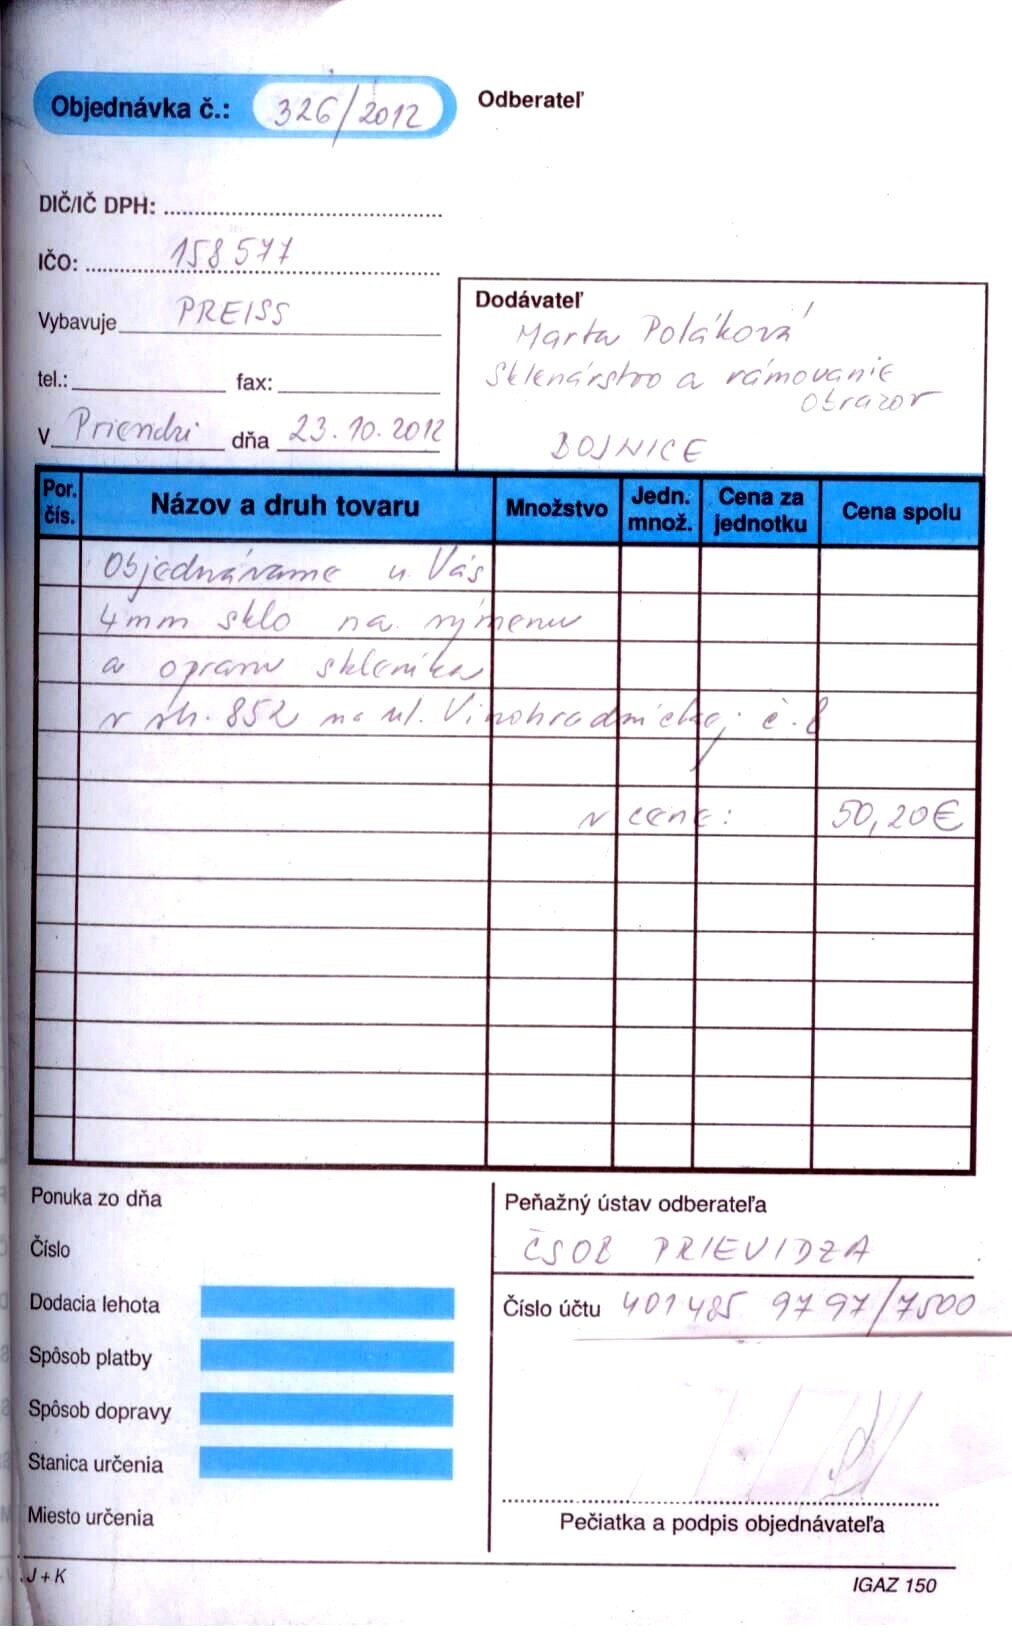 Objednávka č.: 326/2012
Odberateľ
DIČ/IČ DPH:
IČO: 158577
Vybavuje PREISS
tel.: fax:
V Prievidzi dňa 23.10.2012
Dodávateľ
Marta Poláková
Sklenárstvo a rámovanie
obrazov
BOJNICE
Por. čís. Názov a druh tovaru Množstvo Jedn. množ. Cena za jednotku Cena spolu
Objednávame u Vás
4mm sklo na výmenu
a opravu skleníka
v sh. 852 na ul. Vinohradníckej č. 8
v cene: 50,20€
Ponuka zo dňa
Číslo
Dodacia lehota
Spôsob platby
Spôsob dopravy
Stanica určenia
Miesto určenia
Peňažný ústav odberateľa
ČSOB PRIEVIDZA
Číslo účtu 401485 9797/7500
Pečiatka a podpis objednávateľa
J + K
IGAZ 150